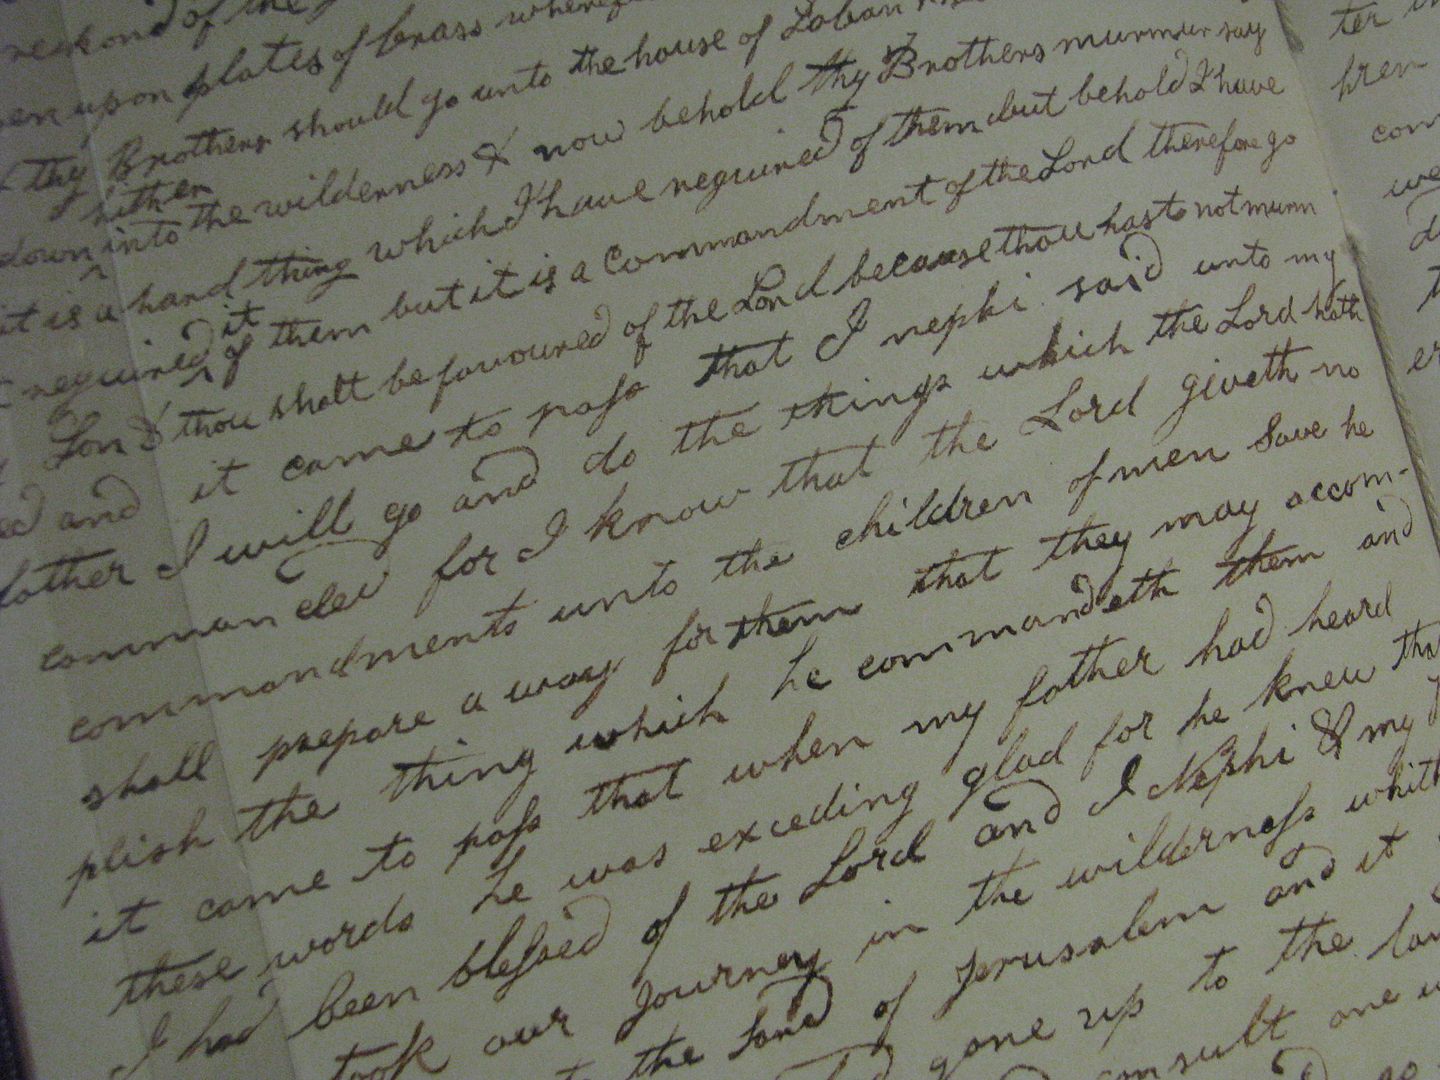 reckond of the
upon plates of brass
thy Brothers should go unto the house of Laban
hither
down into the wilderness & now behold thy Brothers murmur say
it is a hard thing which I have required of them but behold I have
it
required of them but it is a commandment of the Lord therefore go
Son & thou shalt be favoured of the Lord because thou hast not murm
ed and it came to pass that I nephi said unto my
father I will go and do the things which the Lord hath
commanded for I know that the Lord giveth no
commandments unto the children of men save he
shall prepare a way for them that they may accom-
plish the thing which he commandeth them and
it came to pass that when my father had heard
these words he was exceding glad for he knew that
I had been blessed of the Lord and I Nephi & my
took our journey in the wilderness
the land of Jerusalem and it
gone up to the
consult one
ter
hren
com
we